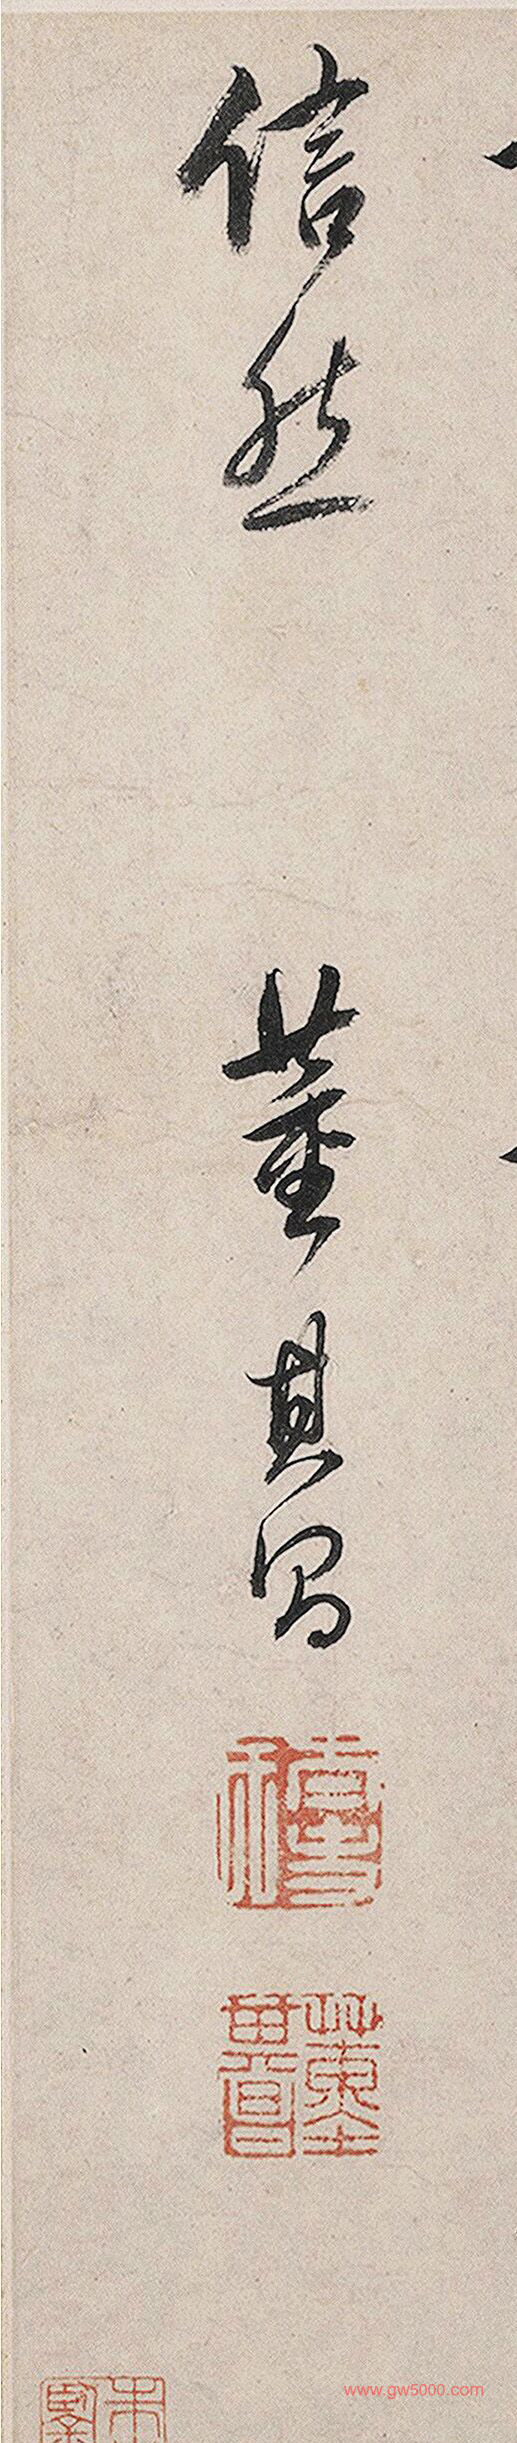 信然
董其昌
董其昌
www.gw5000.com